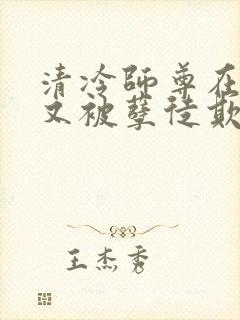 清冷師尊在
又被孽徒欺
王杰秀